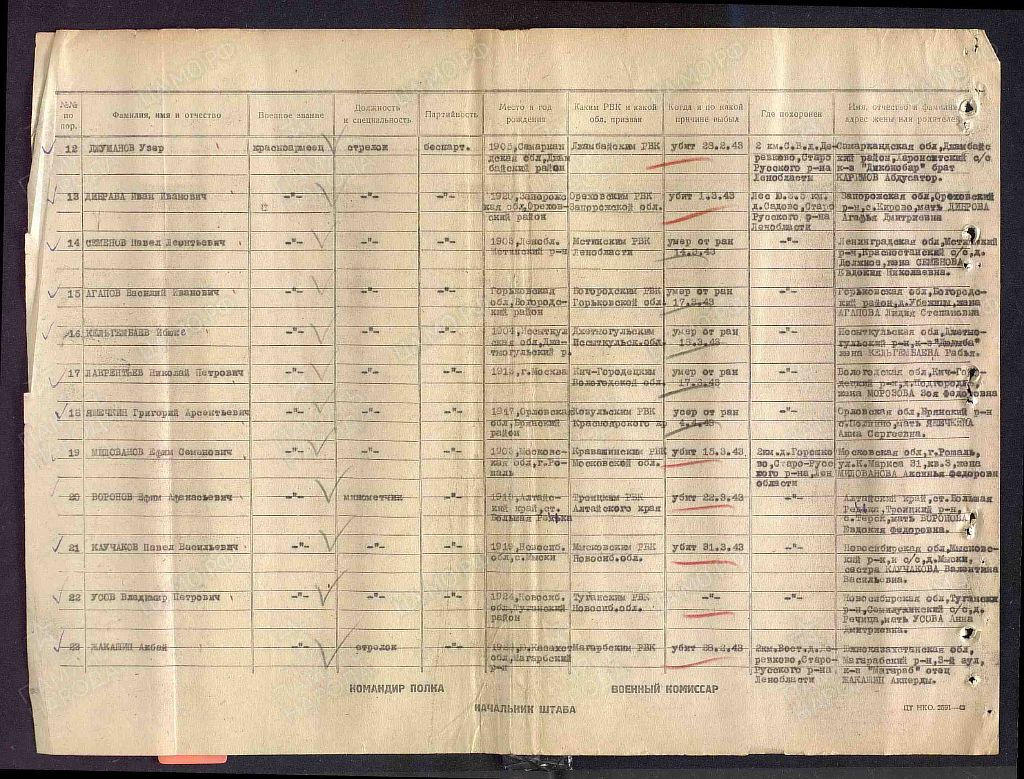 №№ по пор.
Фамилия, имя и отчество
Военное звание
Должность и специальность
Партийность
Место и год рождения
Каким РВК и какой обл. призван
Когда и по какой причине выбыл
Где похоронен
Имя, отчество и фамилия, адрес жены или родителей
12 ДЖУМАНОВ Узар красноармеец стрелок беспарт. 1905,Самаркандская обл,Джамбайский район Джамбайским РВК убит 28.2.43 2 км.С.В.д.Деревково,Старо Русского р-на Ленобласть Самаркандская обл,Джамбайский район, с/с к-з брат КАРИМОВ Абдусатор.
13 ДИБРАВА Иван Иванович -"- -"- -"- Запорожская обл,Ореховский район Ореховским РВК Запорожской обл. убит 1.3.43 Лес км. д.Садово,Старо Русского р-на Ленобласти Запорожская обл,Ореховский р-н,с.Кирово,мать ДИБРОВА Агафья Дмитриевна
14 СЕМЕНОВ Павел Леонтьевич -"- -"- -"- 1903,Ленобл. Мстинский р-н Мстинским РВК Ленобласти умер от ран 14.3.43 -"- Ленинградская обл,Мстинский р-н,Красностанский с/с,д. жена СЕМЕНОВА Евдокия Николаевна.
15 АГАПОВ Василий Иванович -"- -"- -"- Горьковская обл,Богородский район Богородским РВК Горьковской обл. умер от ран 17.3.43 -"- Горьковская обл,Богородский район,д.Убежицы,жена АГАПОВА Лидия Степановна
16 КЕЛЬГЕМБАЕВ -"- -"- -"- 1904,Иссыкульская обл,Джетмогульский р. Джетмогульским Иссыкульск.обл. умер от ран 18.3.43 -"- Иссыкульская обл,Джетмогульский р-н,к-з жена КЕЛЬГЕМБАЕВА Рабья.
17 ЛАВРЕНТЬЕВ Николай Петрович -"- -"- -"- 1912,г.Москва Кич-Городецким Вологодской обл. умер от ран 17.3.43 -"- Вологодская обл,Кич-Городецкий р-н, жена МОРОЗОВА Зоя Федоровна
18 ЯШЕЧКИН Григорий Арсентьевич -"- -"- -"- 1917,Орловская обл,Брянский район РВК Красноярского кр усер от ран 4.4.43 -"- Орловская обл,Брянский р-н с.Полпино,мать ЯШЕЧКИНА Анна Сергеевна.
19 МИЛОВАНОВ Ефим Семенович -"- -"- -"- 1903,Московская обл,г.Рошаль Кривандинским РВК Московской обл. убит 15.3.43 2км.д.Горсково,Старо-Русского р-на,Лен области Московская обл,г.Рошаль, ул.К.Маркса 31,кв.3,жена МИЛОВАНОВА Аксинья Федоровна
20 ВОРОНОВ Ефим Афанасьевич -"- минометчик -"- 1918,Алтайский край,ст. Большая Речька Троицким РВК Алтайского края убит 22.3.43 -"- Алтайский край,ст.Большая Речька,Троицкий р-н, мать ВОРОНОВА Евдокия Федоровна.
21 КАУЧАКОВ Павел Васильевич -"- -"- -"- 1919,Новосиб. обл,с.Мыски Мысковским РВК Новосиб.обл. убит 31.3.43 -"- Новосибирская обл,Мысковский р-н,и с/с,д.Мыски, сестра КАУЧАКОВА Валентина Васильевна.
22 УСОВ Владимир Петрович -"- -"- -"- 1924,Новосиб. обл,Туганский район Туганским РВК Новосиб.обл. -"- -"- Новосибирская обл,Туганский р-н,Семилужинский с/с,д. Речица,мать УСОВА Анна Дмитриевна.
23 ЖАКАШИН Акбай -"- стрелок -"- обл,Магарбский р-н Магарбским РВК убит 28.2.43 2км.Вост.д.Деревково,Старо-Русского р-на Ленобласти Южноказахстанская обл, Магарабский р-н,3-й аул, к-з "Магараб" отец ЖАКАШИН Акперды.
КОМАНДИР ПОЛКА
ВОЕННЫЙ КОМИССАР
НАЧАЛЬНИК ШТАБА
ЦТ НКО. 2591—43